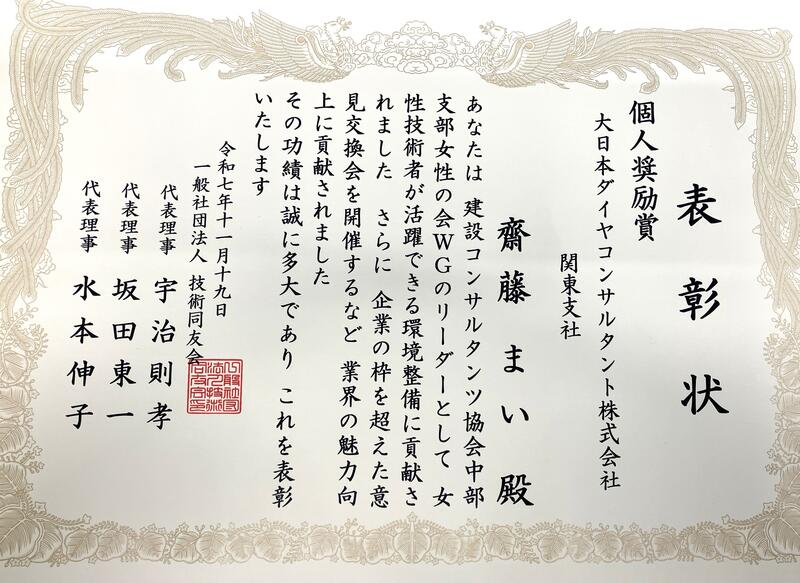 表彰状
個人奨励賞
大日本ダイヤコンサルタント株式会社
関東支社
齋藤まい殿
あなたは 建設コンサルタンツ協会中部
支部女性の会WGのリーダーとして 女
性技術者が活躍できる環境整備に貢献さ
れました さらに 企業の枠を超えた意
見交換会を開催するなど 業界の魅力向
上に貢献されました
その功績は誠に多大であり これを表彰
いたします
令和七年十一月十九日
一般社団法人 技術同友会
代表理事 宇治則孝
代表理事 坂田東一
代表理事 水本伸子